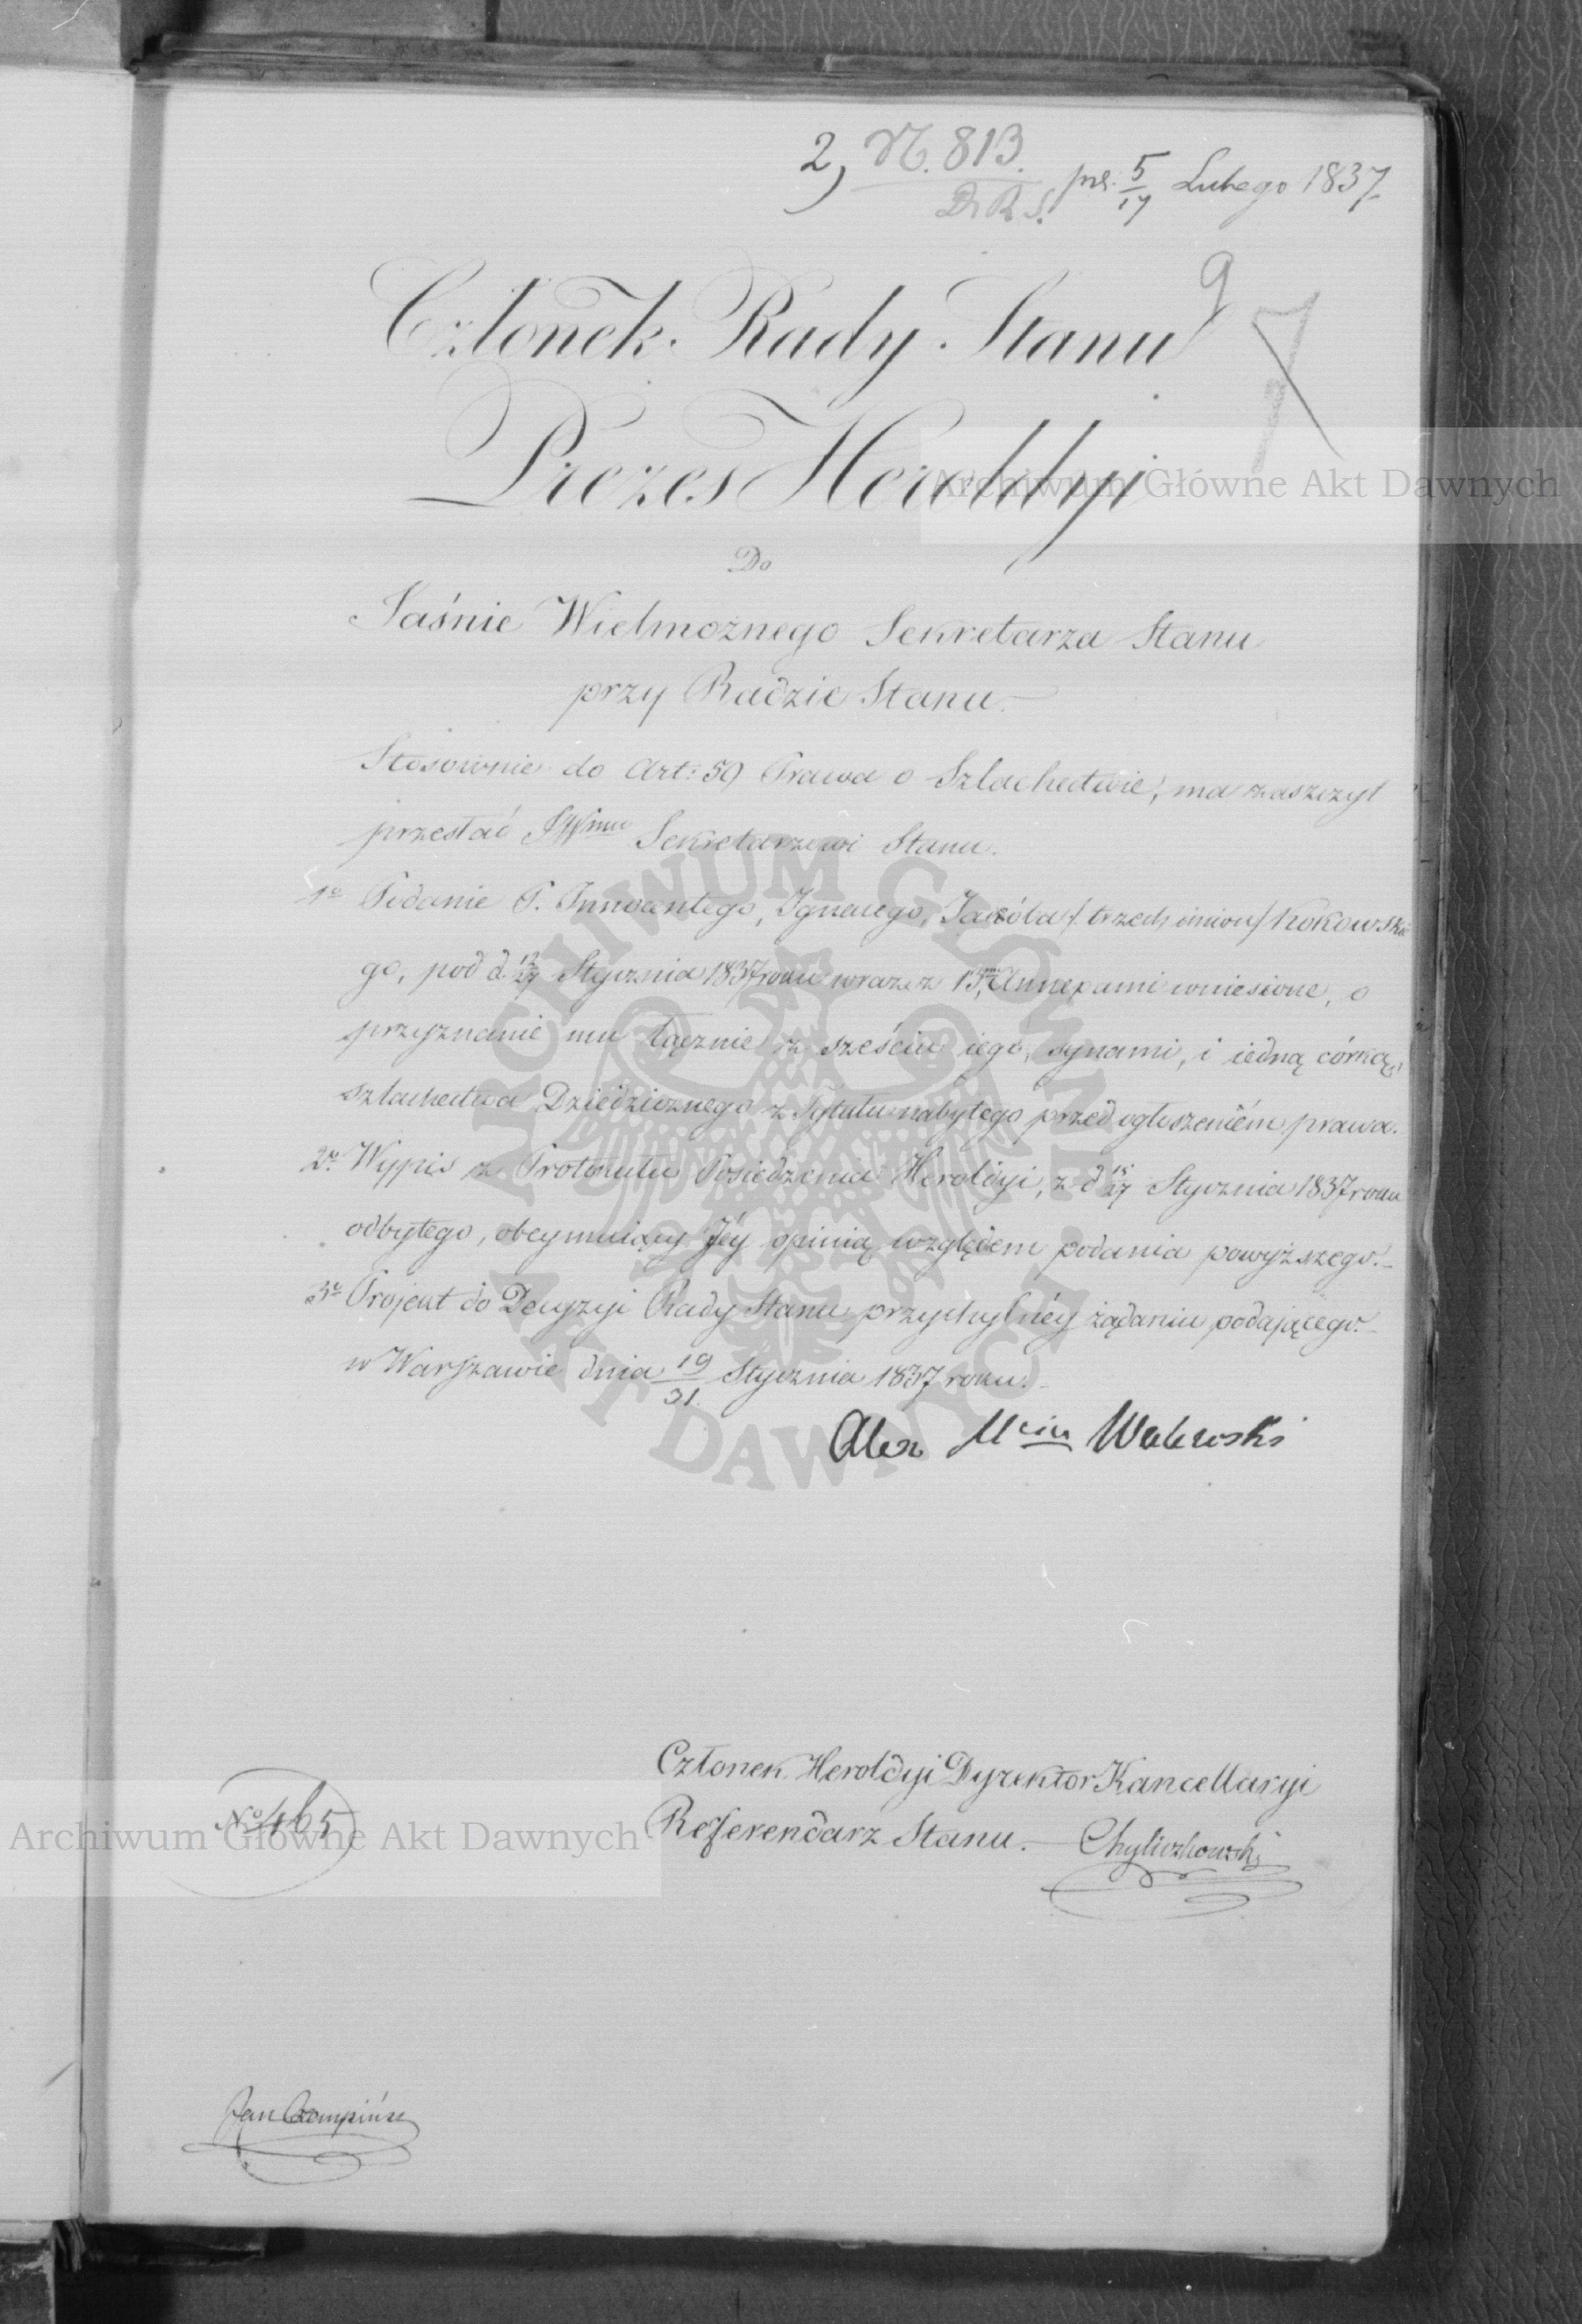 2, N. 813. pr. 5/17 Lutego 1837
D. R. S.
9
Członek Rady Stanu
Prezes Heroldyi
Do
Jaśnie Wielmożnego Sekretarza Stanu
przy Radzie Stanu.
Stosownie do Art: 59 Prawa o Szlachectwie, ma zaszczyt
przesłać JWmu Sekretarzowi Stanu.
1o Podanie P. Innocentego, Ignacego, Jakóba /trzech imion/ Kokowskie
go, pod d. Stycznia 1837 roku wraz z 15 Annexami wniesione, o
przyznanie mu łącznie z sześciu iego, synami, i iedną córką,
szlachectwa Dziedzicznego z Tytułu nabytego przed ogłoszeniém prawa.
2o Wypis z Protokułu Posiedzenia Heroldyi, z d 15/27 Stycznia 1837 roku
odbytego, obeymuiący Jéy opinią względem podania powyższego.
3o Projekt do Decyzyi Rady Stanu przychylnéy żądaniu podającego.
w Warszawie dnia 19/31 Stycznia 1837 roku.
Alex Walewski
Członek Heroldyi Dyrektor Kancellaryi
Referendarz Stanu. Chyliczkowski
No 465
Jan
Archiwum Główne Akt Dawnych
Archiwum Główne Akt Dawnych
ARCHIWUM GŁÓWNE AKT DAWNYCH